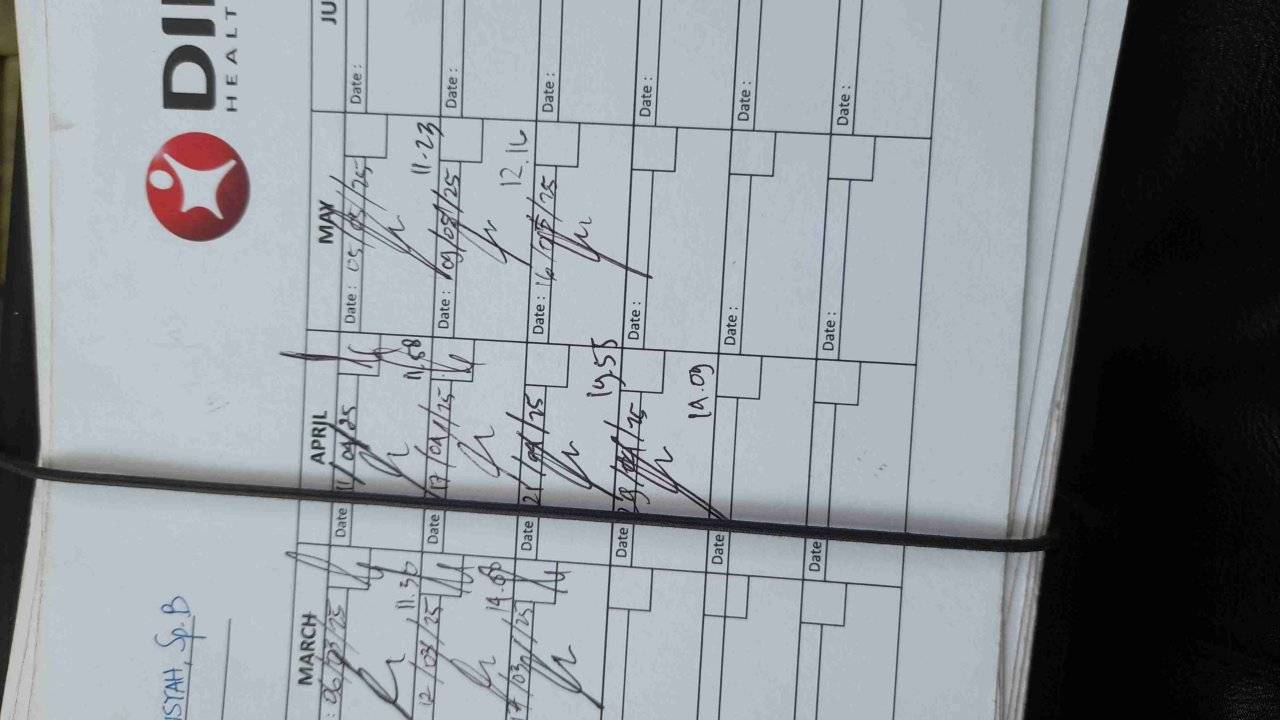 ISYAH, Sp.B
HEALT
MARCH
APRIL
MAY
JU
06/03/25
Date 11/04/25
Date : 05/05/25
Date :
11.30
11.58
11.23
12/03/25
Date 17/04/25
Date : 09/05/25
Date :
12.16
17/03/25
Date 21/04/25
Date : 16/05/25
Date :
19.55
Date 29/04/25
Date :
Date :
14.09
Date
Date :
Date :
Date
Date :
Date :